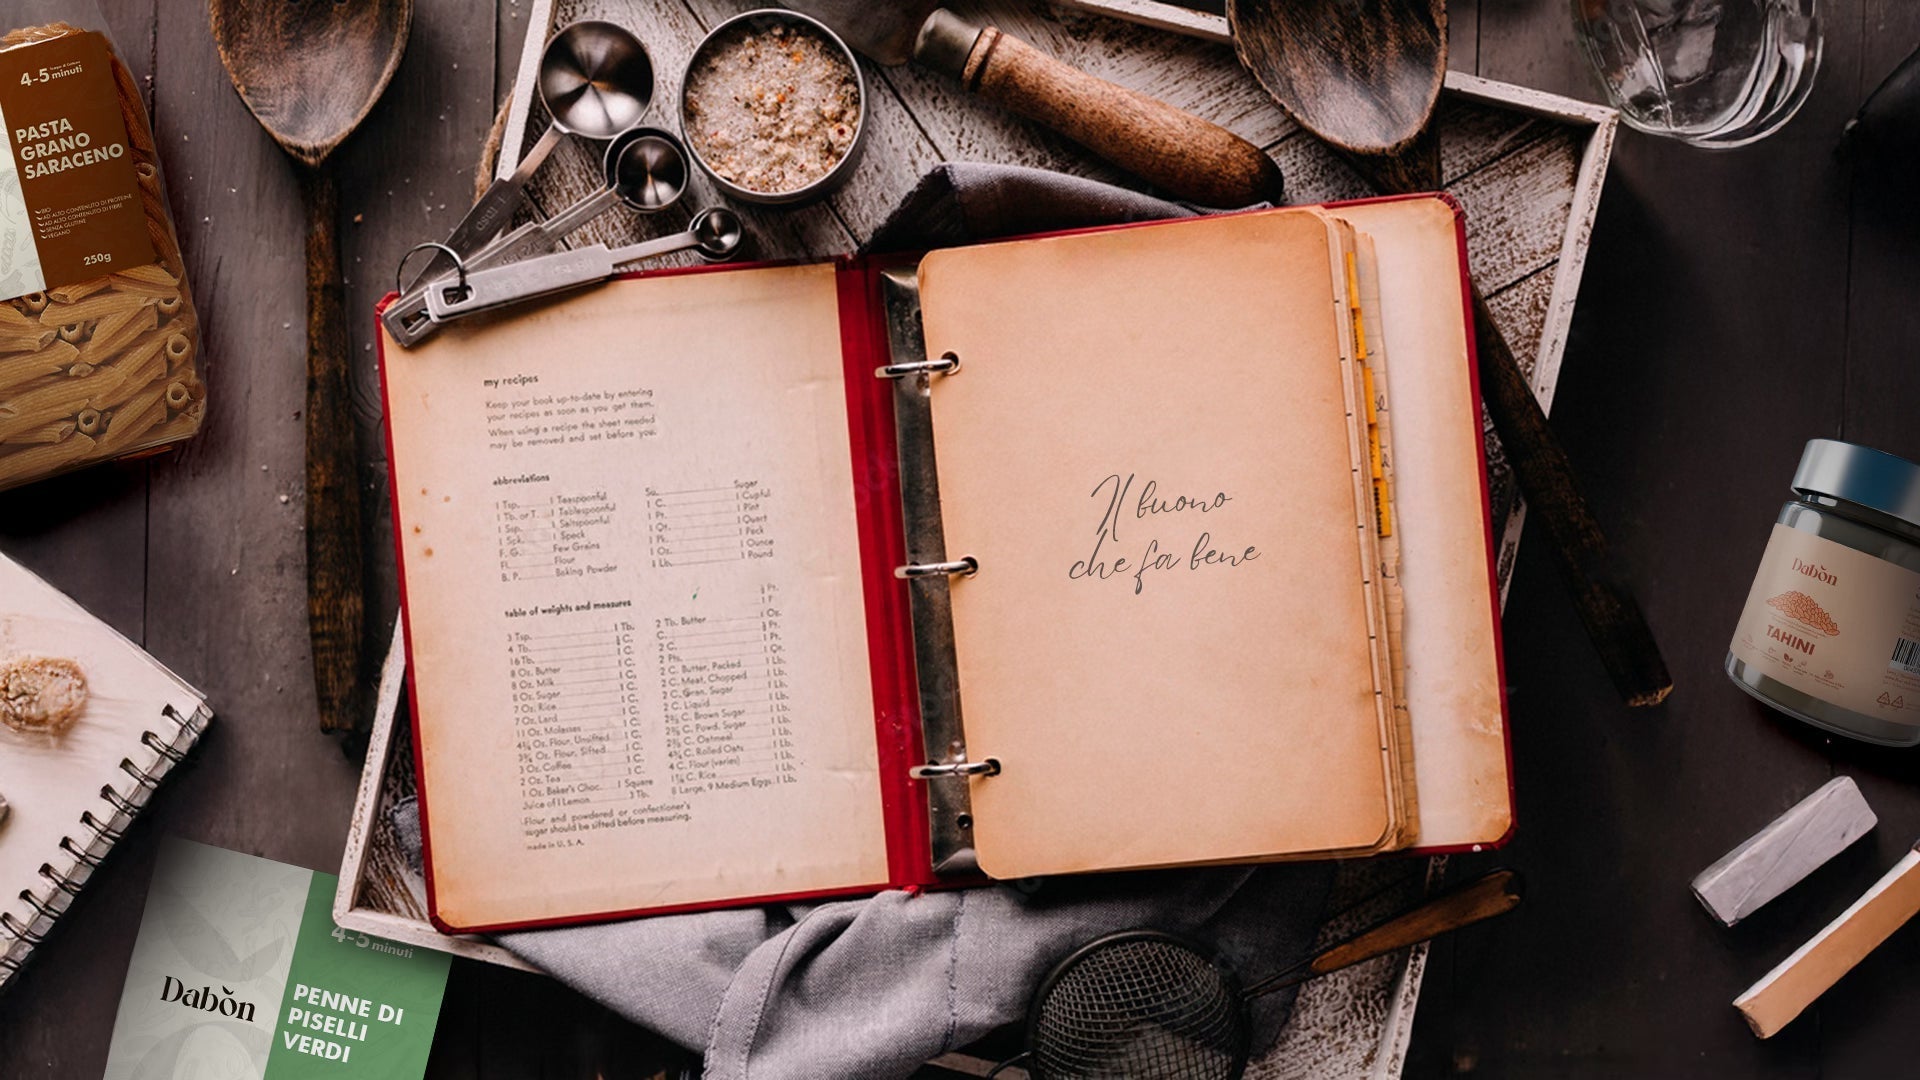 4-5 minuti
PASTA
GRANO
SARACENO
BIO
AD ALTO CONTENUTO DI PROTEINE
AD ALTO CONTENUTO DI FIBRE
SENZA GLUTINE
VEGANO
250g
my recipes
Keep your book up-to-date by entering
your recipes as soon as you get them.
When using a recipe the sheet needed
may be removed and set before you.
abbreviations
1 Tsp. 1 Teaspoonful
1 Tb. or T. 1 Tablespoonful
Ssp. 1 Saltspoonful
1 Spk. 1 Speck
F. G. Few Grains
Fl. Flour
B. P. Baking Powder
Su. Sugar
1 C. 1 Cupful
1 Pt. 1 Pint
1 Qt. 1 Quart
1 Pk. 1 Peck
1 Oz. 1 Ounce
1 Lb. 1 Pound
table of weights and measures
3 Tsp. 1 Tb.
4 Tb.
16 Tb. 1 C.
8 Oz. Butter 1 C.
8 Oz. Milk 1 C.
8 Oz. Sugar 1 C.
7 Oz. Rice 1 C.
7 Oz. Lard 1 C.
11 Oz. Molasses 1 C.
Oz. Flour, Unsifted 1 C.
Oz. Flour, Sifted 1 C.
3 Oz. Coffee 1 C.
2 Oz. Tea 1 C.
1 Oz. Baker's Choc. 1 Square
Juice of 1 Lemon 3 Tb.
2 Tb. Butter 1 Oz.
2 C. 1 Pt.
2 Pts. 1 Qt.
2 C. Butter, Packed 1 Lb.
2 C. Meat, Chopped 1 Lb.
2 C. Gran. Sugar 1 Lb.
2 C. Liquid 1 Lb.
C. Brown Sugar 1 Lb.
C. Powd. Sugar 1 Lb.
C. Oatmeal 1 Lb.
C. Rolled Oats 1 Lb.
4 C. Flour (varies) 1 Lb.
C. Rice 1 Lb.
8 Large, 9 Medium Eggs 1 Lb.
Flour and powdered or confectioner's
sugar should be sifted before measuring.
made in U. S. A.
Il buono
che fa bene
Dabòn
TAHINI
4-5 minuti
Dabòn
PENNE DI
PISELLI
VERDI